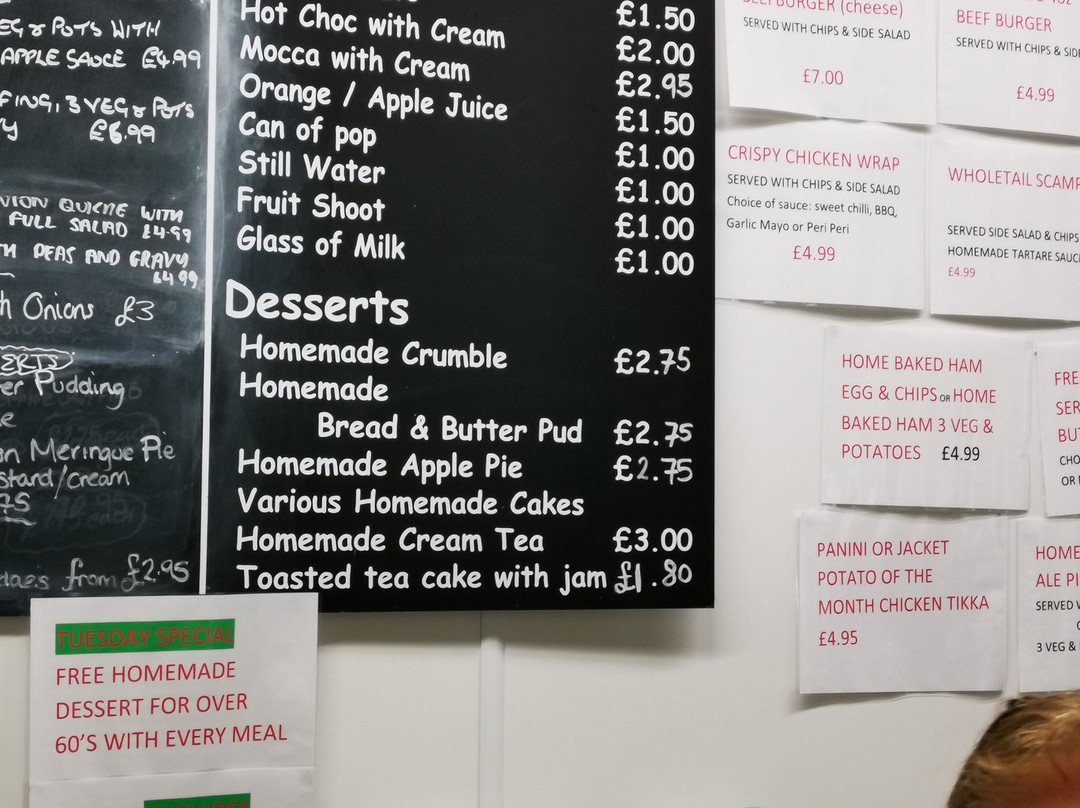 EG & POTS WITH
APPLE SAUCE £4.99
FING, 3 VEG & POTS
£6.99
QUICHE WITH
FULL SALAD £4.99
PEAS AND GRAVY
£4.99
h Onions £3
er Pudding
Meringue Pie
stard/cream
75
from £2.95
£1.50
Hot Choc with Cream £2.00
Mocca with Cream £2.95
Orange / Apple Juice £1.50
Can of pop £1.00
Still Water £1.00
Fruit Shoot £1.00
Glass of Milk £1.00
Desserts
Homemade Crumble £2.75
Homemade
Bread & Butter Pud £2.75
Homemade Apple Pie £2.75
Various Homemade Cakes
Homemade Cream Tea £3.00
Toasted tea cake with jam £1.80
TUESDAY SPECIAL
FREE HOMEMADE
DESSERT FOR OVER
60'S WITH EVERY MEAL
BEEFBURGER (cheese)
SERVED WITH CHIPS & SIDE SALAD
£7.00
BEEF BURGER
SERVED WITH CHIPS & SIDE
£4.99
CRISPY CHICKEN WRAP
SERVED WITH CHIPS & SIDE SALAD
Choice of sauce: sweet chilli, BBQ,
Garlic Mayo or Peri Peri
£4.99
WHOLETAIL SCAMP
SERVED SIDE SALAD & CHIPS
HOMEMADE TARTARE SAUC
£4.99
HOME BAKED HAM
EGG & CHIPS OR HOME
BAKED HAM 3 VEG &
POTATOES £4.99
FRE
SER
BU
CHO
OR
PANINI OR JACKET
POTATO OF THE
MONTH CHICKEN TIKKA
£4.95
HOME
ALE PI
SERVED
3 VEG &